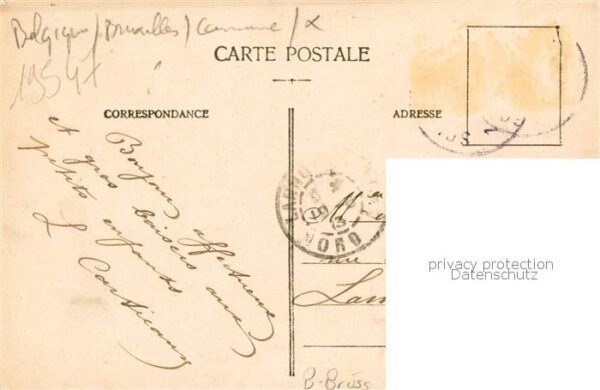 Belgique/Bruxelles/Commune/X
19547
CARTE POSTALE
CORRESPONDANCE
ADRESSE
Bonjour affectueux
et gros baisers aux
petits enfants
L
LANNOY
NORD
rue
Lan
privacy protection
Datenschutz
B-Brüss